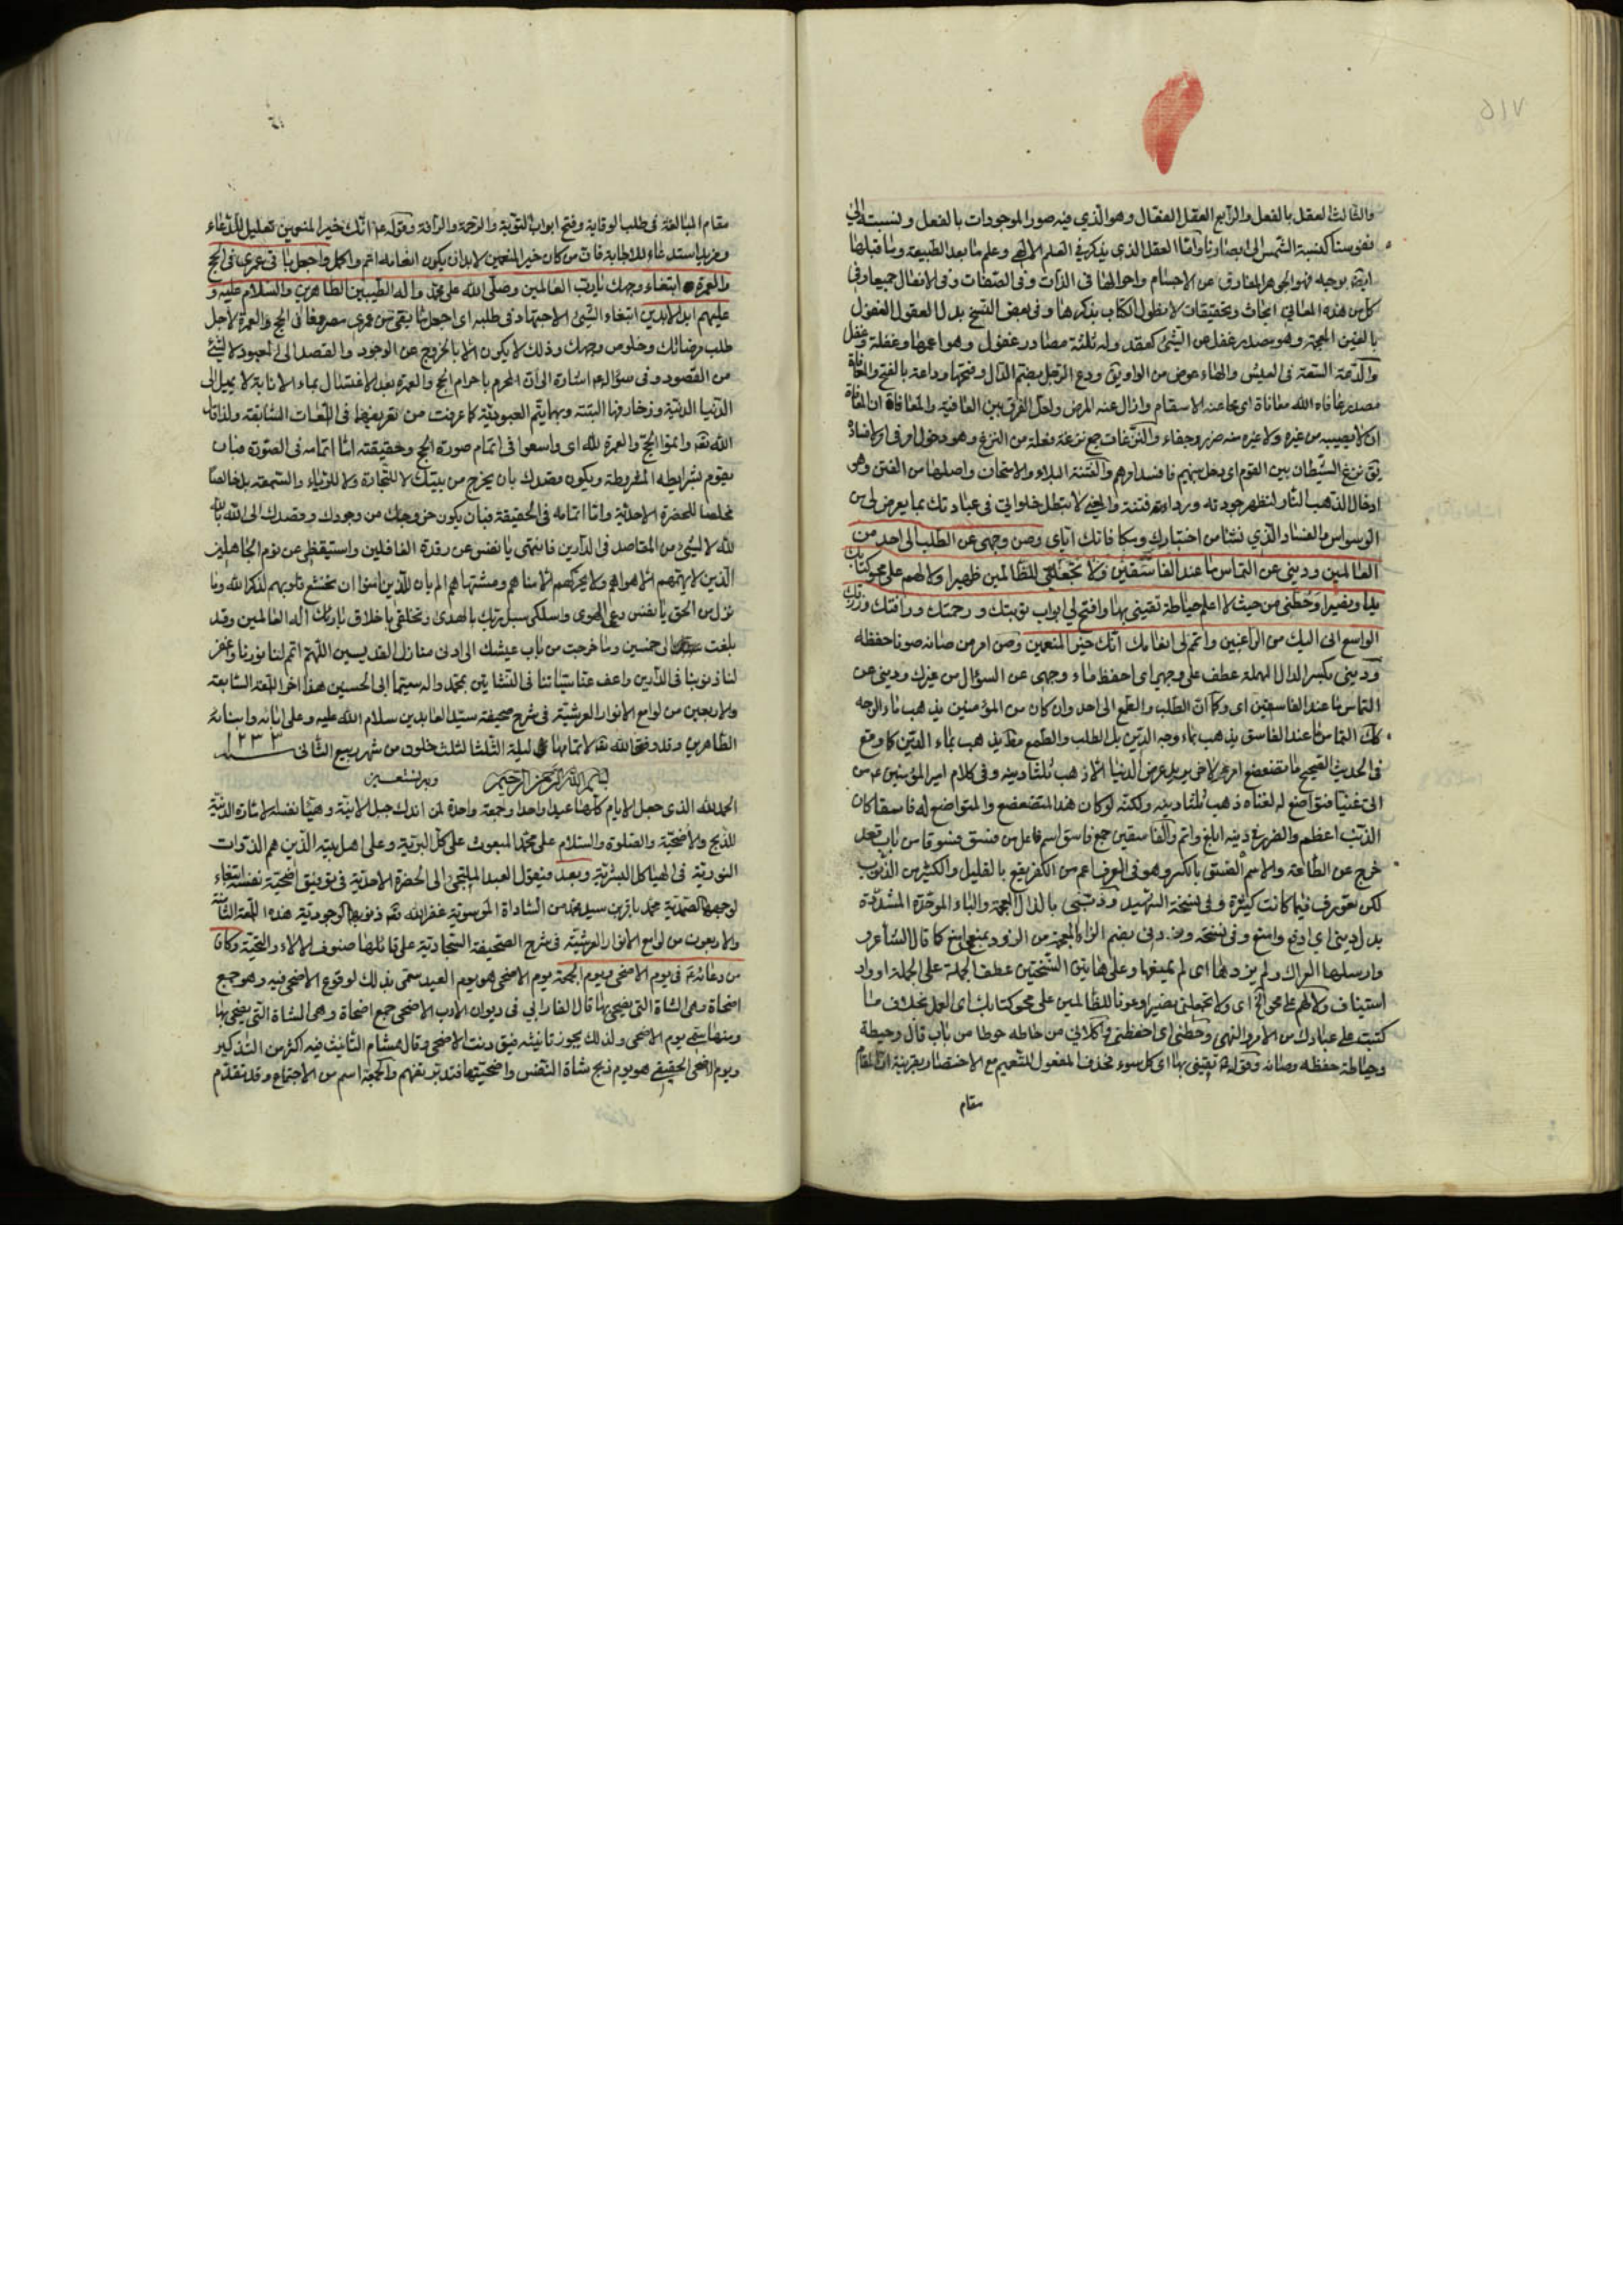 ٥١٧
والثالث العقل بالفعل والرابع العقل الفعال وهو الذي فيه صور الموجودات بالفعل ونسبته الى
نفوسنا كنسبة الشمس الى ابصارنا وامّا العقل الذي يذكر في العلم الالهي وعلم ما بعد الطبيعة وما قبلها
فهو الجوهر المفارق عن الاجسام واحوالها في الذات وفي الصفات وفي الافعال جميعا وفي
كل من هذه المعاني ابحاث وتحقيقات لا نطول الكتاب بذكرها وفي بعض النسخ بدل العقول الغفول
بالغين المعجمة وهو مصدر غفل عن الشئ كعقد وله ثلثة مصادر غفول وهو اعمها وغفلة وغفل
والدعة السعة في العيش والهاء عوض من الواو يق ودع الرجل بضم الدال وفتحها وداعة بالفتح والمعافاة
مصدر عافاه الله معافاة اى محا عنه الاسقام وازال عنه المرض ولعل الفرق بين العافية والمعافاة ان المعافاة
ان لا يصيبه من غيره ولا غيره منه ضرر وجفاء والنزغات جمع نزغة فعلة من النزغ وهو دخول امر في امر لافساده
يق نزغ الشيطان بين القوم اى دخل بينهم فافسد امرهم والفتنة البلاء والامتحان واصلها من الفتن وهو
ادخال الذهب النار لتظهر جودته ورداءته فتنة والمعنى لا تبطل خلواتي في عباداتك بما يعرض لى من
الوسواس والفساد الذي نشأ من اختبارك وبكا فانك اياى وصن وجهى عن الطلب الى احد من
العالمين وديني عن التماس ما عند الفاسقين ولا تجعلني للظالمين ظهيرا ولا لهم على محو كتابك
يدا ونصيرا وحطني من حيث لا اعلم حياطة تقيني بها وافتح لي ابواب توبتك ورحمتك ورأفتك ورزقك
الواسع انى اليك من الراغبين واتمم لى انعامك انك خير المنعمين وصن امر من صانه صونا حفظه
وديني بكسر الدال المهملة عطف على وجهى اى احفظ ماء وجهى عن السؤال من غيرك وديني عن
التماس ما عند الفاسقين اى وكما ان الطلب والطمع الى احد وان كان من المؤمنين يذهب بماء الوجه
كك التماس ما عند الفاسق يذهب بماء وجه الدين بل الطلب والطمع مطلقا يذهب بماء الدين كما وقع
في الحديث الصحيح ما تضعضع امرء لاخر يريد عرض الدنيا الا ذهب ثلثا دينه وفي كلام امير المؤمنين ع من
اتى غنيا فتواضع له لغناه ذهب ثلثا دينه ولكنه لو كان هذا المتضعضع والمتواضع له فاسقا كان
الذنب اعظم والضرر في دينه ابلغ واتم والفاسقين جمع فاسق اسم فاعل من فسق فسوقا من باب قعد
خرج عن الطاعة والاسم الفسق بالكسر وهو في العرف اعم من الكفر يقع بالقليل والكثير من الذنوب
لكن تعورف فيما كانت كثيرة وفي نسخة الشهيد وذبني بالذال المعجمة والباء الموحدة المشددة
بدل وديني اى ادفع وامنع وفي نسخة
وارسلها العراك ولم يزدها اى لم يمنعها وعلى هاتين النسختين عطف الجملة على الجملة او واو
استيناف ولا لهم على محو الخ اى ولا تجعلني نصيرا وعونا للظالمين على محو كتابك اى العمل بخلاف ما
كتبته على عبادك من الامر والنهى وحطني اى احفظني واكلائي من حاطه حوطا من باب قال وحيطة
وحياطة حفظه وصانه وقوله ع تقيني بها اى كل سوء فحذف المفعول للتعميم مع الاختصار بقرينة ان المقام
مقام
مقام المبالغة في طلب الوقاية وفتح ابواب التوبة والرحمة والرأفة وقوله ع انك خير المنعمين تعليل للدعاء
ومزيد استدعاء للاجابة فان من كان خير المنعمين لابد ان يكون انعامه اتم واكمل واجعل باقى عمري في الحج
والعمرة ابتغاء وجهك يا رب العالمين وصلى الله على محمد واله الطيبين الطاهرين والسلام عليه و
عليهم ابد الابدين ابتغاء الشئ الاجتهاد في طلبه اى اجعل ما بقى من عمري مصروفا في الحج والعمرة لاجل
طلب مرضاتك وخلوص وجهك وذلك لا يكون الا بالخروج عن الوجود والقصد الى المعبود لا لشئ
من القصود وفي سؤاله ع اشارة الى ان المحرم باحرام الحج والعمرة بعد الاغتسال بماء الانابة لا يميل الى
الدنيا الدنية وزخارفها البتة وبها يتم العبودية كما عرفت من تعريفها في اللمعات السابقة ولذا قال
الله تعه واتموا الحج والعمرة لله اى واسعوا في اتمام صورة الحج وحقيقته امّا اتمامه في الصورة فبان
يقوم بشرايطه المفروطة ويكون قصدك بان يخرج من بيتك لا للتجارة ولا للرياء والسمعة بل خالصا
مخلصا للحضرة الاحدية وامّا اتمامه في الحقيقة فبان يكون خروجك من وجودك وقصدك الى الله بالله
لله لا لشئ من المقاصد في الدارين فانتهى يا نفس عن رقدة الغافلين واستيقظى عن نوم الجاهلين
الذين لا يهمهم الا هواهم ولا يحركهم الا مناهم ومشتهاهم الم يان للذين امنوا ان تخشع قلوبهم لذكر الله وما
نزل من الحق يا نفس دعى الهوى واسلكى سبيل ربك بالهدى وتخلقى باخلاق بارئك اله العالمين وقد
بلغت الى خمسين وما خرجت من باب عيشك الى ادنى منازل القديسين اللهم اتمم لنا نورنا واغفر
لنا ذنوبنا في الدارين واعف عنا سيئاتنا في النشاتين بمحمد واله سيما ابى الحسين هذا اخر اللمعة السابعة
والاربعين من لوامع الانوار العرشية في شرح صحيفة سيد العابدين سلام الله عليه وعلى ابائه وابنائه
الطاهرين وقد وفقنا الله تعه لاتمامها في ليلة الثلثا لثلث خلون من شهر ربيع الثانى سنة ١٢٣٣
بسم الله الرحمن الرحيم وبه نستعين
الحمد لله الذى جعل الايام كلها عيدا واحدا وجمعة واحدة لمن اندك جبل الانية وهيأ نفسه الامارة الدنية
للذبح والاضحية والصلوة والسلام على محمد المبعوث على كل البرية وعلى اهل بيته الذين هم الذوات
النورية في الهياكل البشرية وبعد فيقول العبد الملتجى الى الحضرة الاحدية في توفيق اضحية نفسه ابتغاء
لوجهه الصمدية محمد باقر بن سيد محمد من السادات الموسوية غفر الله تعه ذنوبه الوجودية هذه اللمعة الثامنة
والاربعون من لوامع الانوار العرشية في شرح الصحيفة السجادية على قائلها صنوف الالاء والتحية وكان
من دعائه ع في يوم الاضحى ويوم الجمعة يوم الاضحى هو يوم العيد سمى بذلك لوقوع الاضحى فيه وهو جمع
اضحاة وهى الشاة التى يضحى بها قال الفارابي في ديوان الادب الاضحى جمع اضحاة وهى الشاة التى يضحى بها
ومنها سمى يوم الاضحى ولذلك يجوز تانيثه فيق دنت الاضحى وقال هشام التانيث فيه اكثر من التذكير
ويوم الاضحى الحقيقى هو يوم ذبح شاة النفس واضحيتها فتدبر تفهم والجمعة اسم من الاجتماع وقد تقدم